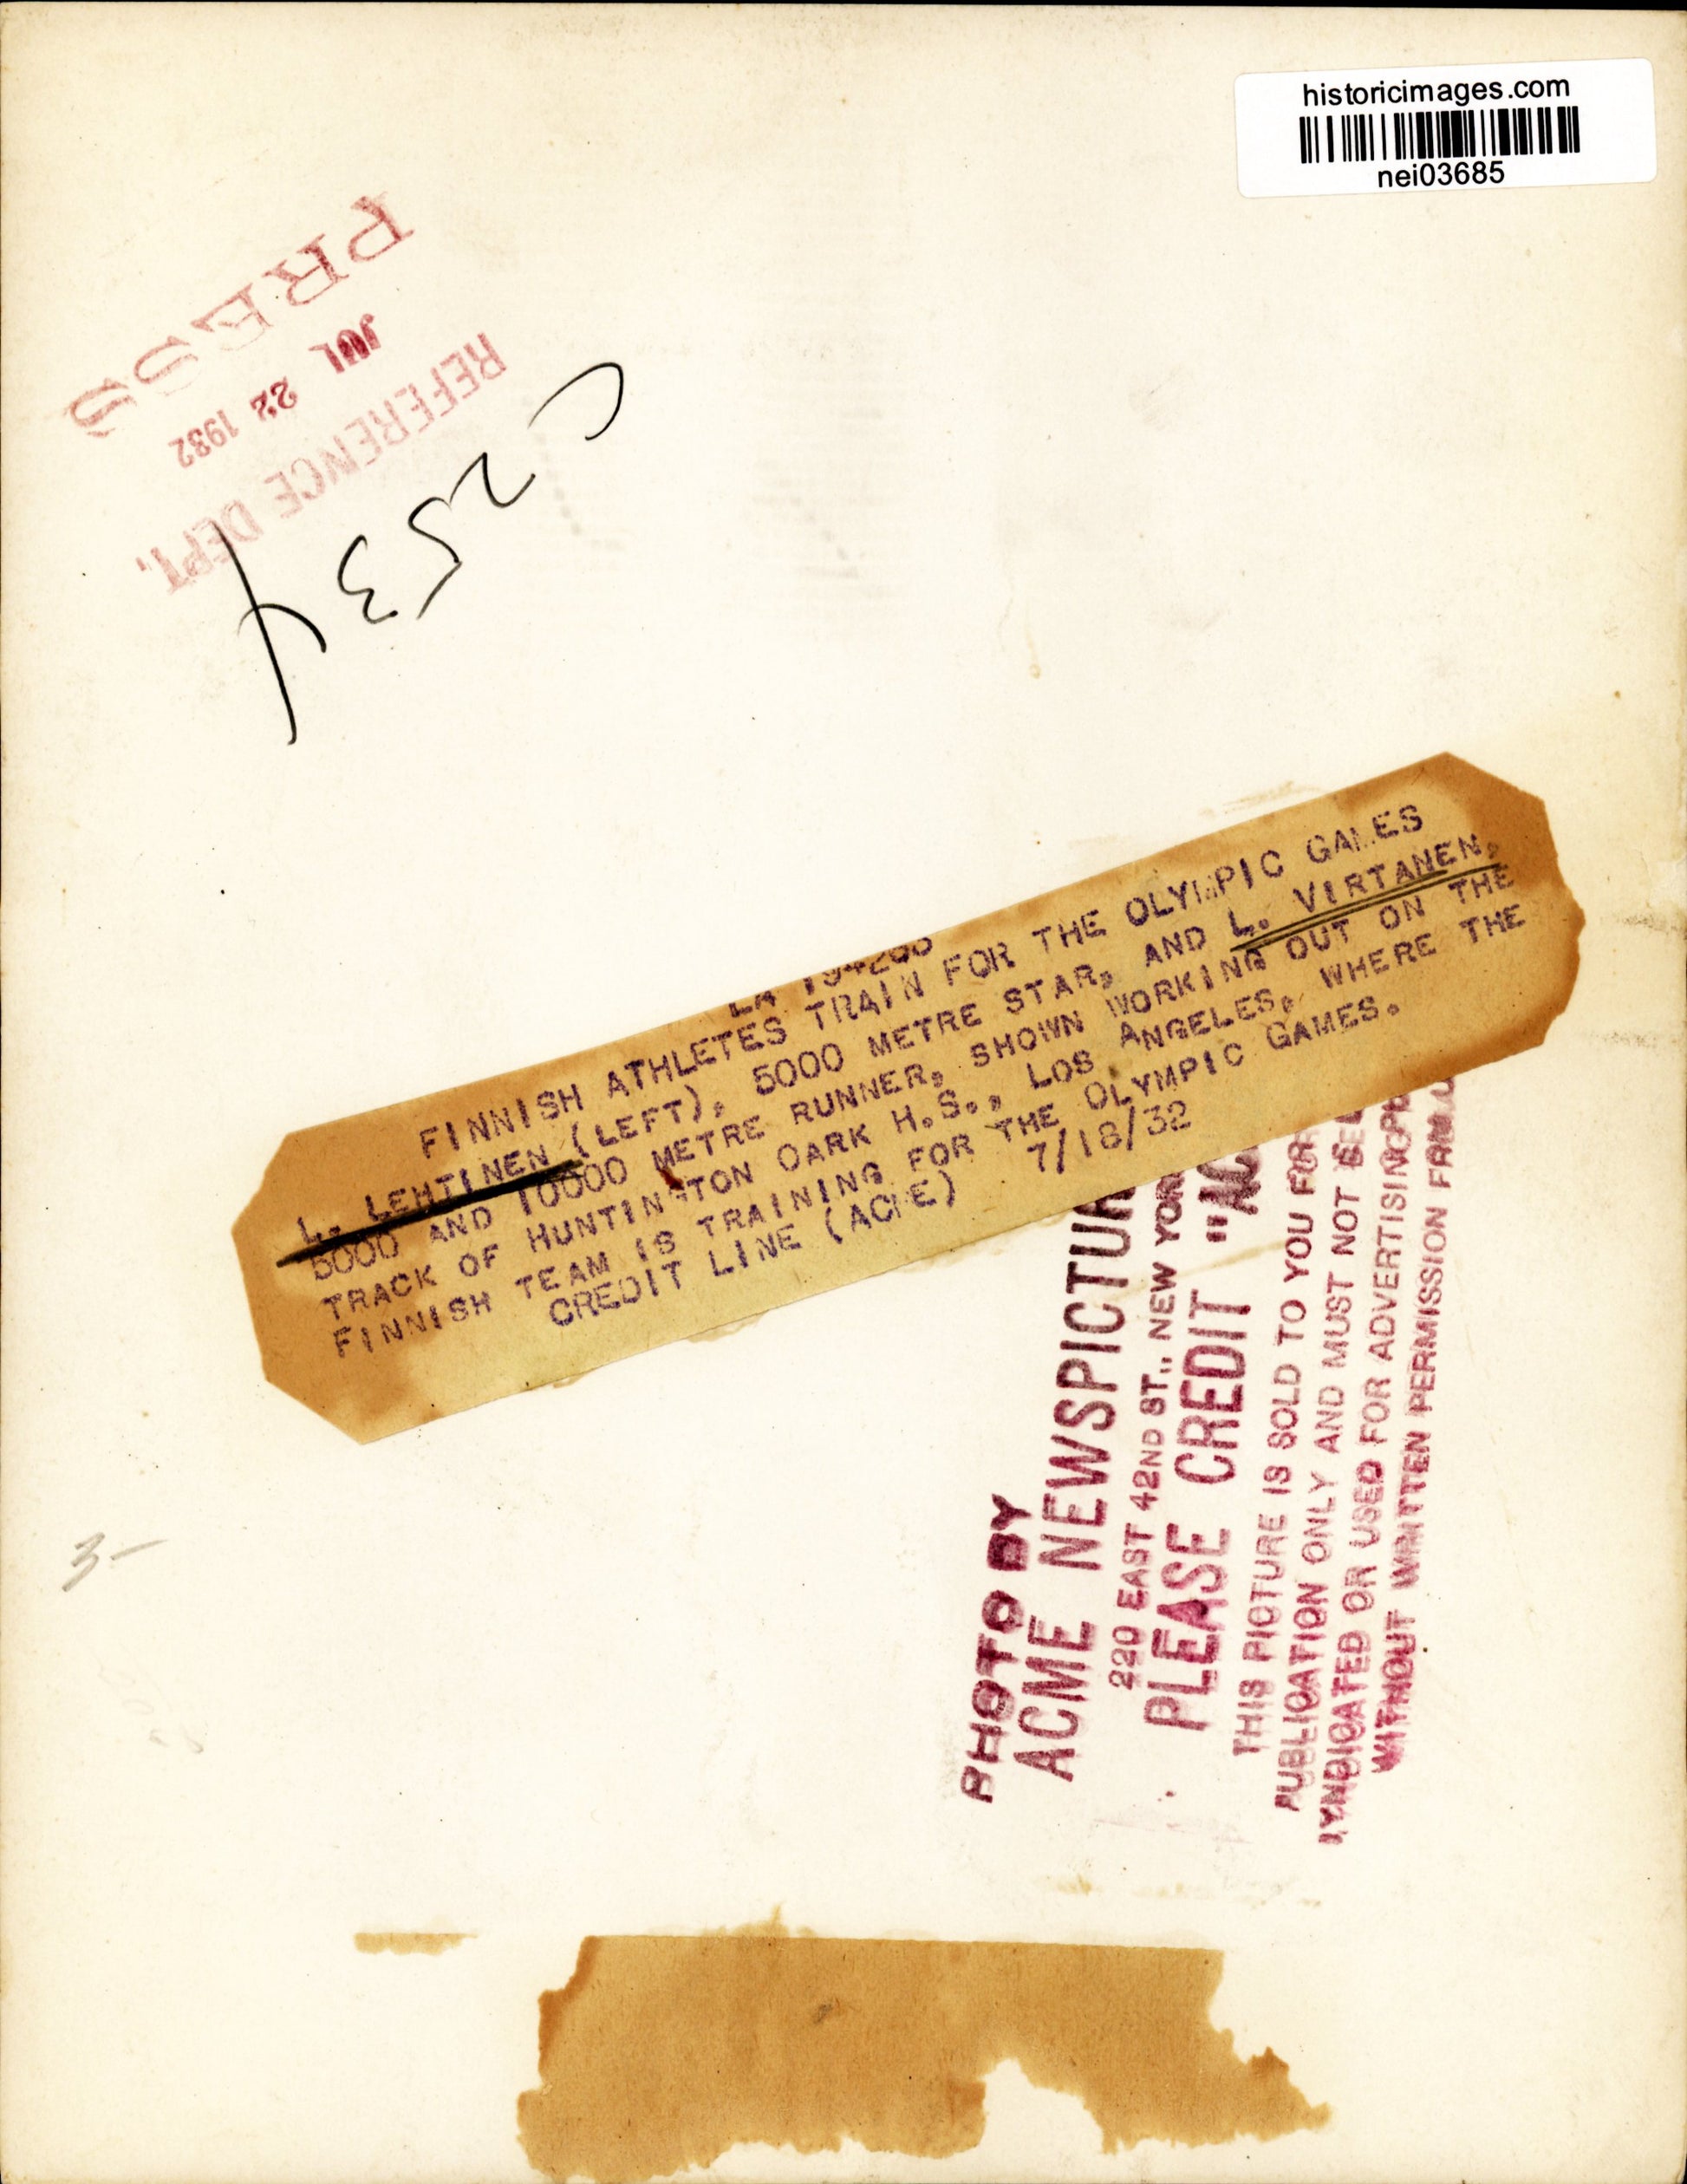 historicimages.com
nei03685
PRESS
JUL 22 1932
REFERENCE DEPT.
C2534
FINNISH ATHLETES TRAIN FOR THE OLYMPIC GAMES
L. LEHTINEN (LEFT), 5000 METRE STAR, AND L. VIRTANEN,
5000 AND 10000 METRE RUNNER, SHOWN WORKING OUT ON THE
TRACK OF HUNTINGTON OARK H.S., LOS ANGELES, WHERE THE
FINNISH TEAM IS TRAINING FOR THE OLYMPIC GAMES.
CREDIT LINE (ACME) 7/18/32
PHOTO BY
ACME NEWSPICTUR
220 EAST 42ND ST., NEW YOR
PLEASE CREDIT "AC
THIS PICTURE IS SOLD TO YOU FOR
PUBLICATION ONLY AND MUST NOT BE
SYNDICATED OR USED FOR ADVERTISING
WITHOUT WRITTEN PERMISSION FROM
3-